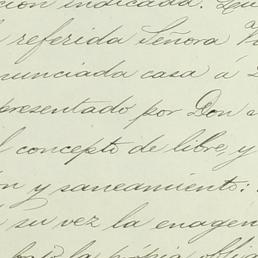 ción indicada.
referida Señora
nunciada casa á
presentado por Don
concepto de libre, y
n y saneamiento:
su vez la enagen
bajo la própia oblig